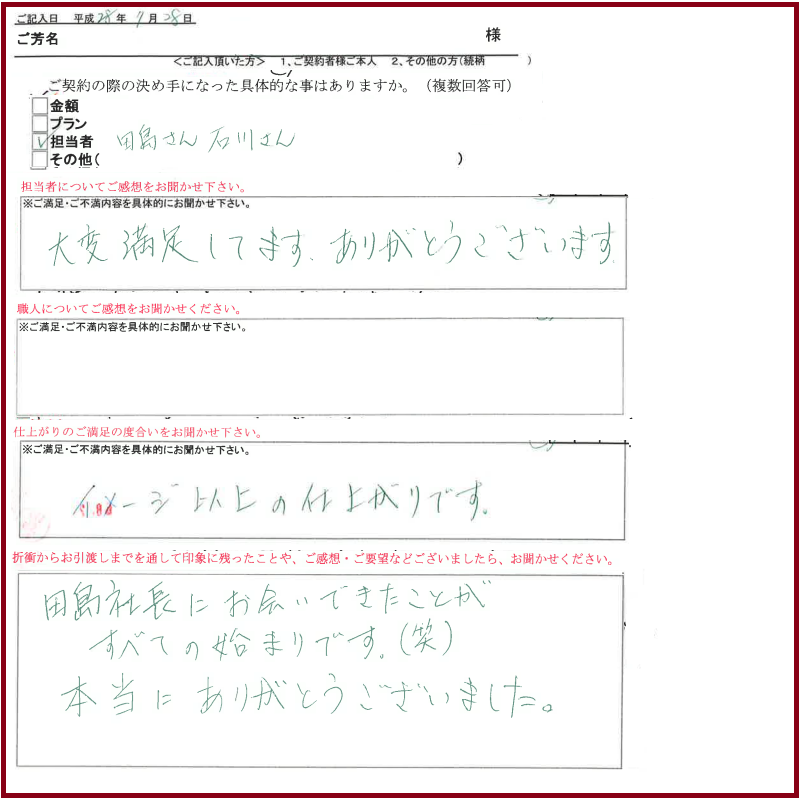 ご記入日 平成28年7月28日
ご芳名 様
<ご記入頂いた方> 1、ご契約者様ご本人 2、その他の方(続柄 )
ご契約の際の決め手になった具体的な事はありますか。(複数回答可)
金額
プラン
✓担当者 田島さん 石川さん
その他( )
担当者についてご感想をお聞かせ下さい。
※ご満足・ご不満内容を具体的にお聞かせ下さい。
大変満足してます、ありがとうございます
職人についてご感想をお聞かせください。
※ご満足・ご不満内容を具体的にお聞かせ下さい。
仕上がりのご満足の度合いをお聞かせ下さい。
※ご満足・ご不満内容を具体的にお聞かせ下さい。
イメージ以上の仕上がりです。
折衝からお引渡しまでを通して印象に残ったことや、ご感想・ご要望などございましたら、お聞かせください。
田島社長にお会いできたことが
すべての始まりです。(笑)
本当にありがとうございました。